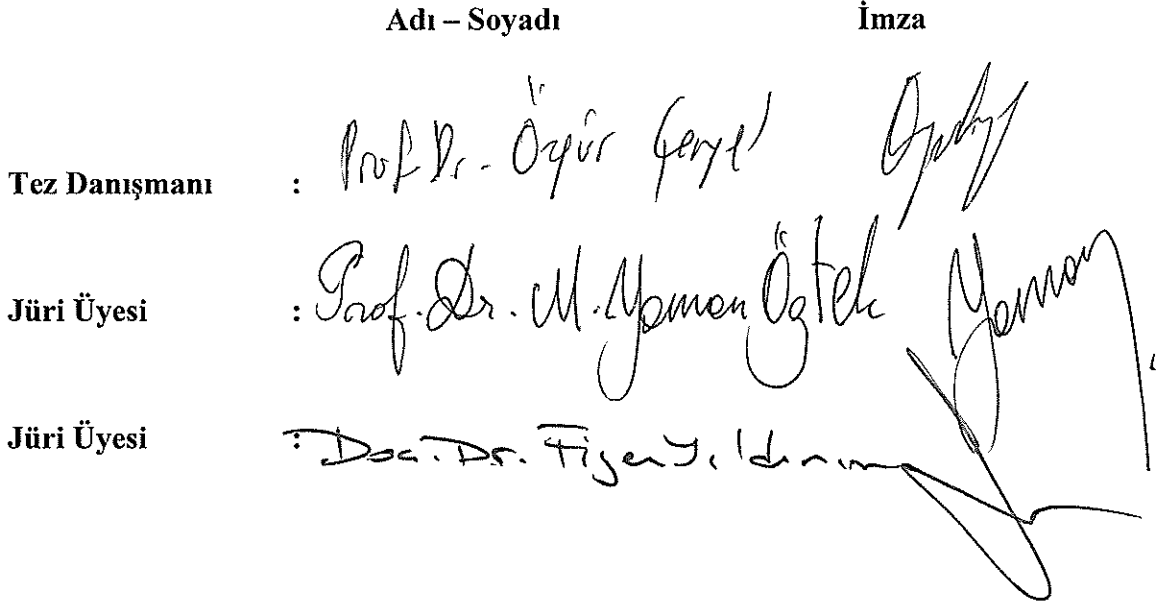 Adı – Soyadı İmza
Tez Danışmanı : Prof. Dr. Özgür Çengel
Jüri Üyesi : Prof. Dr. M. Yaman Öztek Yaman
Jüri Üyesi : Doç. Dr. Figen Yıldırım